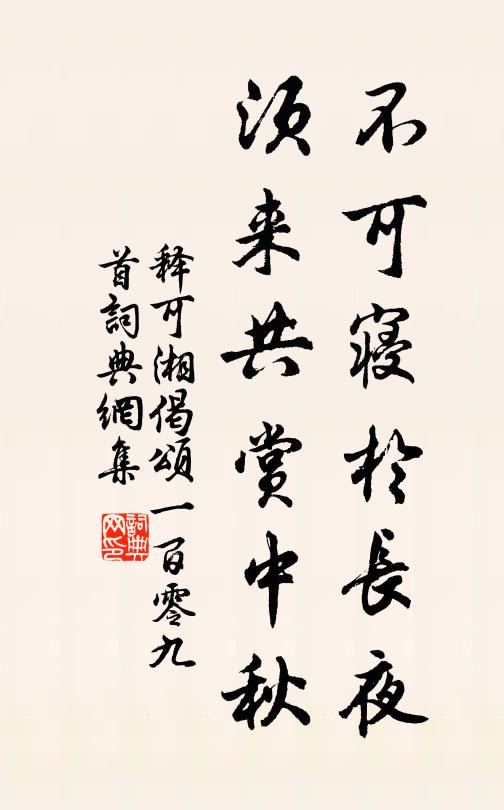 不可寢於長夜
須来共賞中秋
释可湘偈頌一百零九
首詞典網集
詞典
网印